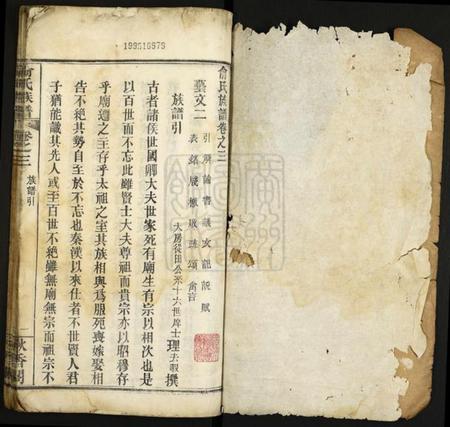 199510979
俞氏族譜卷之三
藝文二
引
表
族譜引
大房從田公派十六世庠士理去瑕撰
古者諸侯世國卿大夫世家死有廟生有宗以相次也是
以百世而不忘此雖賢士大夫尊祖而貴宗亦以昭穆存
乎廟遷之主存乎太祖之室其族相與為服死喪嫁娶相
告不絕其勢自至於不忘也秦漢以來仕者不世賢人君
子猶能識其先人或至百世不絕雖無廟無宗而祖宗不
俞氏族譜
卷之三
族譜引
秋香閣